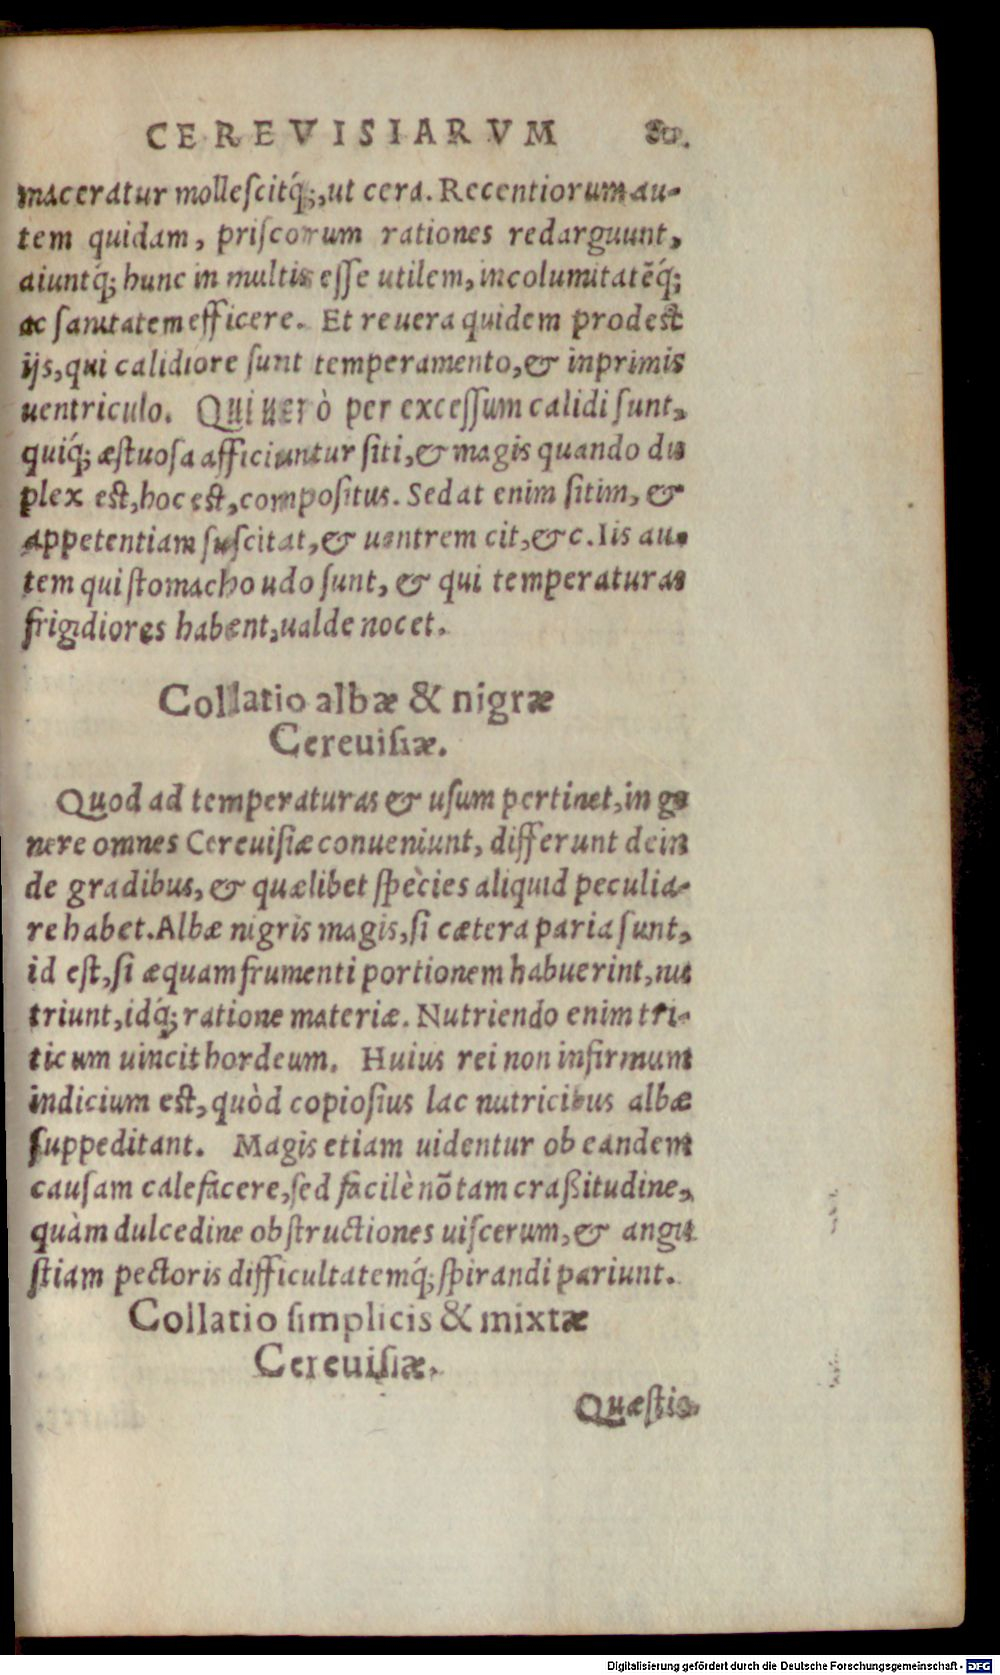 CEREVISIARVM 80.
maceratur mollescitq́;, ut cera. Recentiorum au-
tem quidam, priscorum rationes redarguunt,
aiuntq́; hunc in multis esse utilem, incolumitatẽq́;
ac sanitatem efficere. Et reuera quidem prodest
ijs, qui calidiore sunt temperamento, & inprimis
uentriculo. Qui uerò per excessum calidi sunt,
quiq́; æstuosa afficiuntur siti, & magis quando du
plex est, hoc est, compositus. Sedat enim sitim, &
appetentiam suscitat, & uentrem cit, &c. Iis au-
tem qui stomacho udo sunt, & qui temperaturas
frigidiores habent, ualde nocet.
Collatio albæ & nigræ
Cereuisiæ.
Quod ad temperaturas & usum pertinet, in ge
nere omnes Cereuisiæ conueniunt, differunt dein
de gradibus, & quælibet spècies aliquid peculia-
re habet. Albæ nigris magis, si cætera paria sunt,
id est, si æquam frumenti portionem habuerint, nu
triunt, idq́; ratione materiæ. Nutriendo enim tri-
ticum uincit hordeum. Huius rei non infirmum
indicium est, quòd copiosius lac nutricibus albæ
suppeditant. Magis etiam uidentur ob eandem
causam calefacere, sed facilè nõ tam craßitudine,
quàm dulcedine obstructiones uiscerum, & angu
stiam pectoris difficultatemq́; spirandi pariunt.
Collatio simplicis & mixtæ
Cereuisiæ.
Quæstio
Digitalisierung gefördert durch die Deutsche Forschungsgemeinschaft - DFG